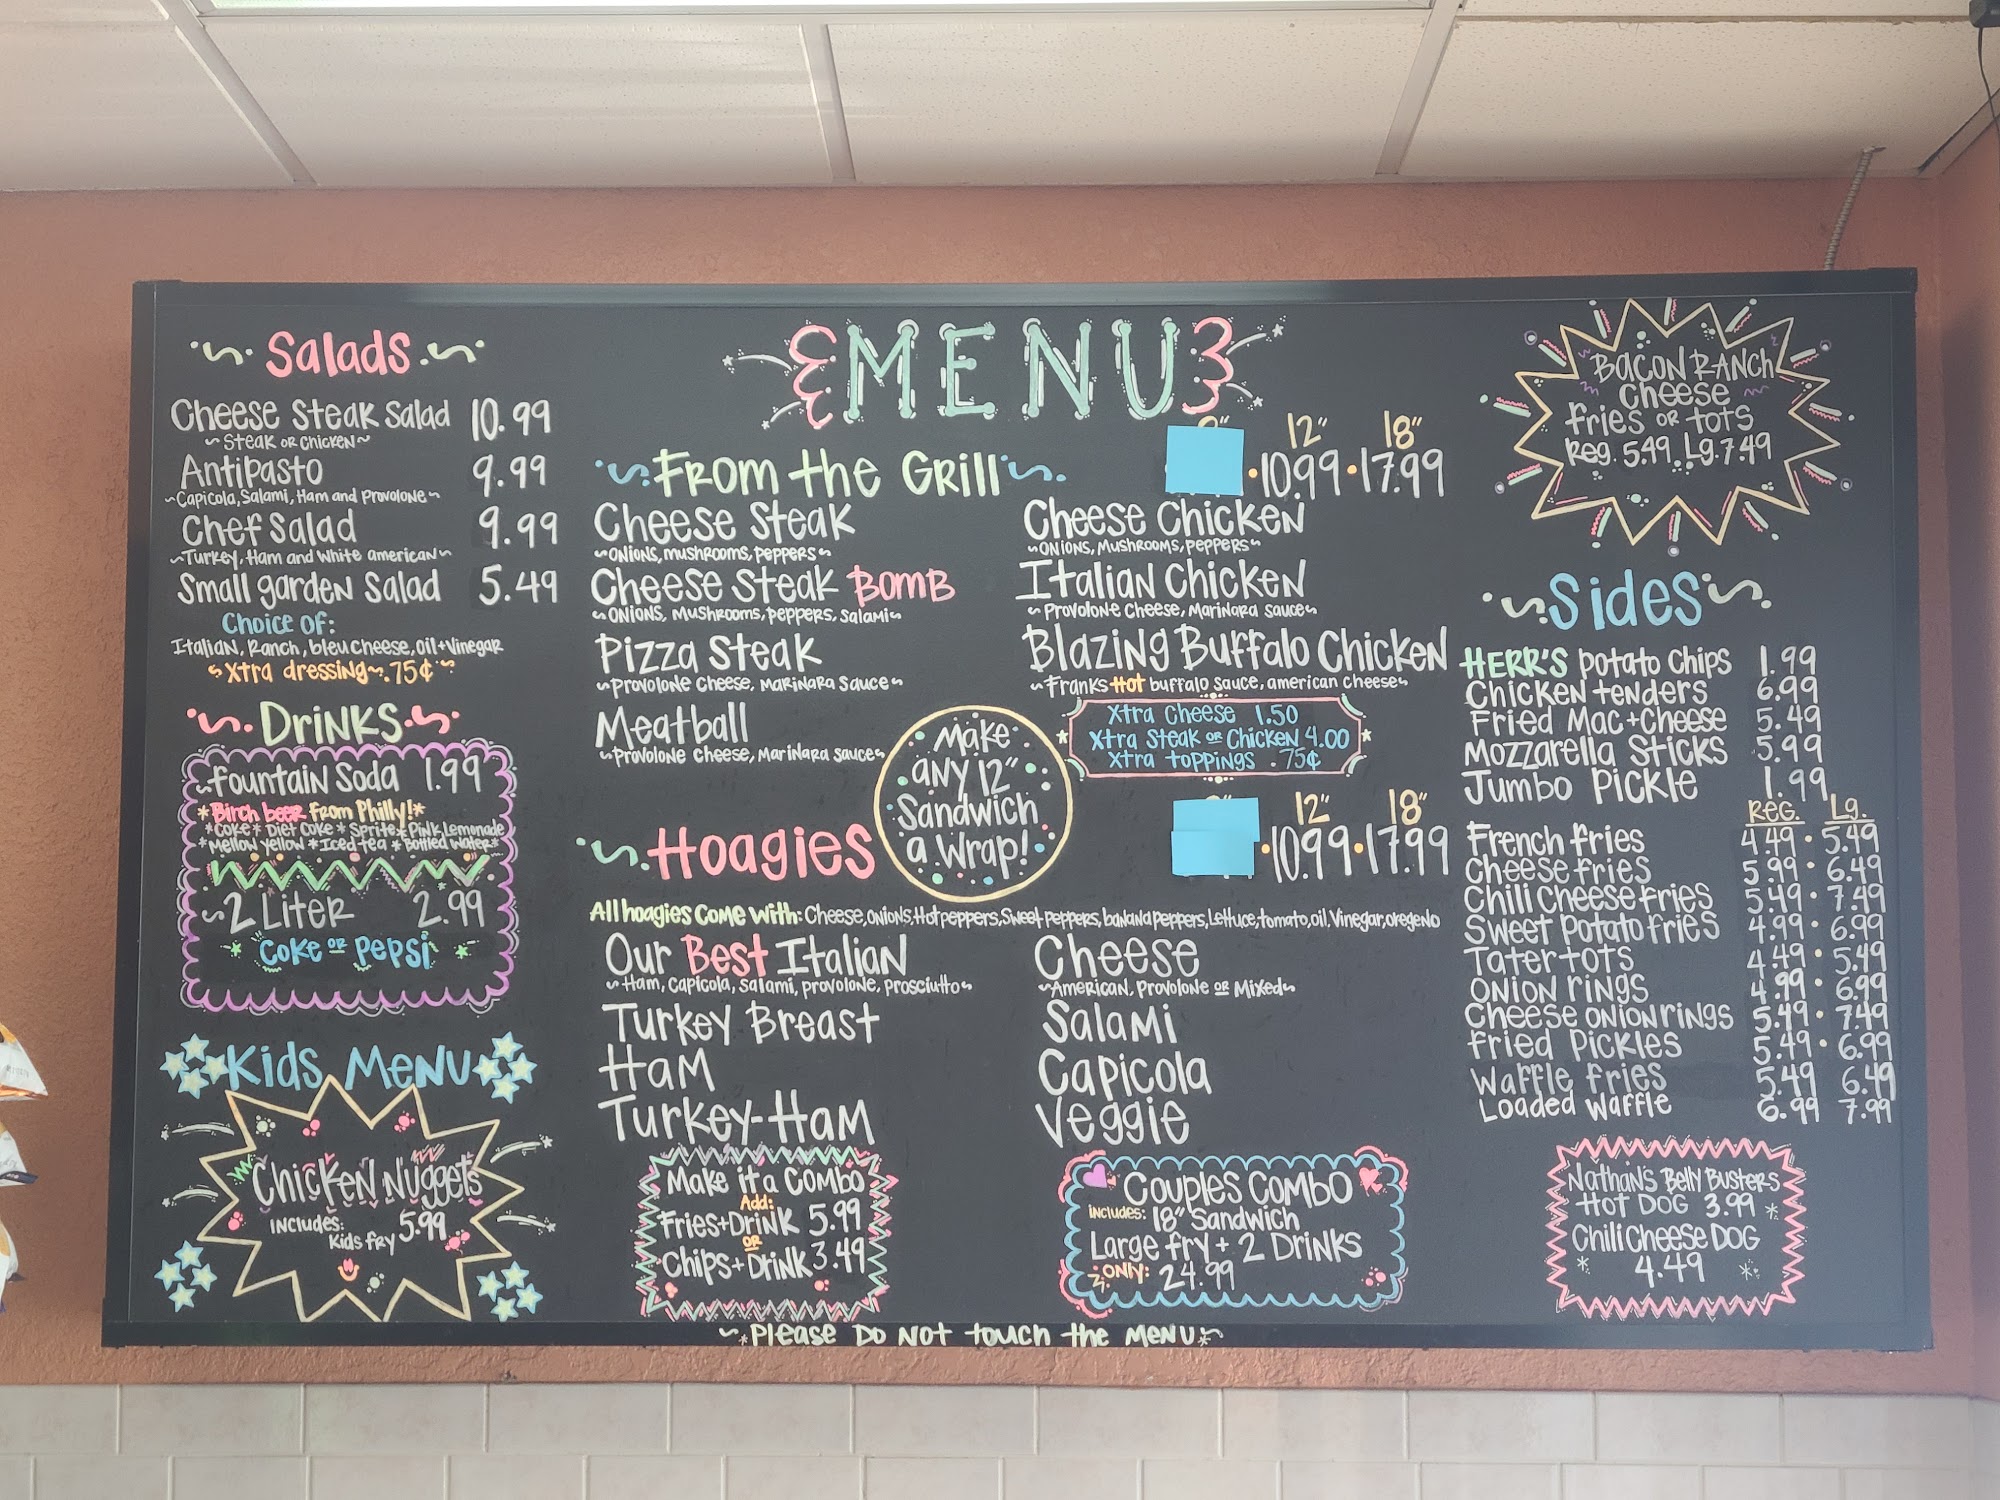 Salads
Cheese Steak Salad 10.99
~Steak or Chicken~
Antipasto 9.99
~Capicola, Salami, Ham and Provolone~
Chef Salad 9.99
~Turkey, Ham and White american~
Small garden Salad 5.49
Choice Of:
Italian, Ranch, bleu cheese, oil+Vinegar
~Xtra dressing~.75¢~
Drinks
Fountain Soda 1.99
*Birch beer from Philly!*
*Coke* Diet Coke * Sprite * Pink Lemonade
*Mellow yellow *Iced tea * Bottled Water*
~2 Liter 2.99
* Coke or Pepsi *
Kids Menu
Chicken Nuggets
includes: 5.99
Kids fry
MENU
From the Grill
12" 18"
•10.99•17.99
Cheese Steak
~Onions, mushrooms, peppers~
Cheese Steak BOMB
~Onions, Mushrooms, peppers, Salami~
Pizza Steak
~Provolone Cheese, Marinara Sauce~
Meatball
~Provolone Cheese, Marinara Sauce~
Cheese Chicken
~Onions, Mushrooms, peppers~
Italian Chicken
~Provolone Cheese, Marinara sauce~
Blazing Buffalo Chicken
~Franks Hot buffalo sauce, american cheese~
Xtra Cheese 1.50
Xtra Steak or Chicken 4.00
Xtra toppings .75¢
Make
any 12"
Sandwich
a wrap!
Hoagies
12" 18"
•10.99•17.99
All hoagies Come With: Cheese, onions, Hot peppers, Sweet peppers, banana peppers, Lettuce, tomato, oil, Vinegar, oregeno
Our Best Italian
~Ham, Capicola, Salami, provolone, prosciutto~
Turkey Breast
Ham
Turkey-Ham
Cheese
~American, Provolone or Mixed~
Salami
Capicola
Veggie
Make it a Combo
Add:
Fries+Drink 5.99
or
Chips+Drink 3.49
Couples Combo
includes: 18" Sandwich
Large fry + 2 Drinks
only: 24.99
Bacon Ranch
Cheese
fries or tots
Reg. 5.49 Lg. 7.49
Sides
HERR'S Potato Chips 1.99
Chicken tenders 6.99
Fried Mac+Cheese 5.49
Mozzarella Sticks 5.99
Jumbo Pickle 1.99
Reg. Lg.
French fries 4.49 • 5.49
Cheese fries 5.99 • 6.49
Chili Cheese fries 5.49 • 7.49
Sweet Potato fries 4.99 • 6.99
Tater tots 4.49 • 5.49
Onion rings 4.99 • 6.99
Cheese Onion rings 5.49 • 7.49
Fried Pickles 5.49 • 6.99
Waffle fries 5.49 6.49
Loaded Waffle 6.99 7.99
Nathan's Belly Busters
Hot Dog 3.99 *
Chili Cheese Dog
* 4.49 *
~*Please Do Not touch the Menu*~